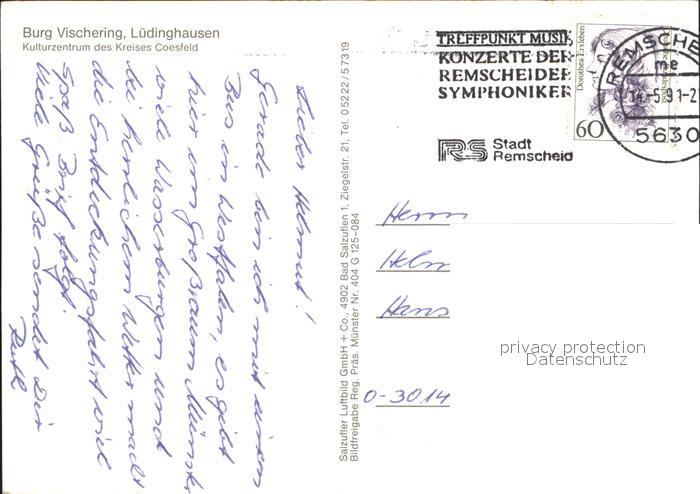 Burg Vischering, Lüdinghausen
Kulturzentrum des Kreises Coesfeld
Lieber Helmut!
Gerade bin ich mit einem
Bus in Westfalen, es gibt
hier im Großraum Münster
viele Wasserburgen und
bei herrlichem Wetter macht
die Entdeckungsfahrt viel
Spaß. Brief folgt.
Viele Grüße sendet Dir
Ruth
Salzufler Luftbild GmbH + Co., 4902 Bad Salzuflen 1, Ziegelstr. 21, Tel. 05222/57319
Bildfreigabe Reg. Präs. Münster Nr. 404 G 125-084
TREFFPUNKT MUSIK
KONZERTE DER
REMSCHEIDER
SYMPHONIKER
RS Stadt
Remscheid
Dorothea Erxleben
60
REMSCHE
me
14-5.91-2
5630
Herrn
Helm
Hans
O-3014
privacy protection
Datenschutz